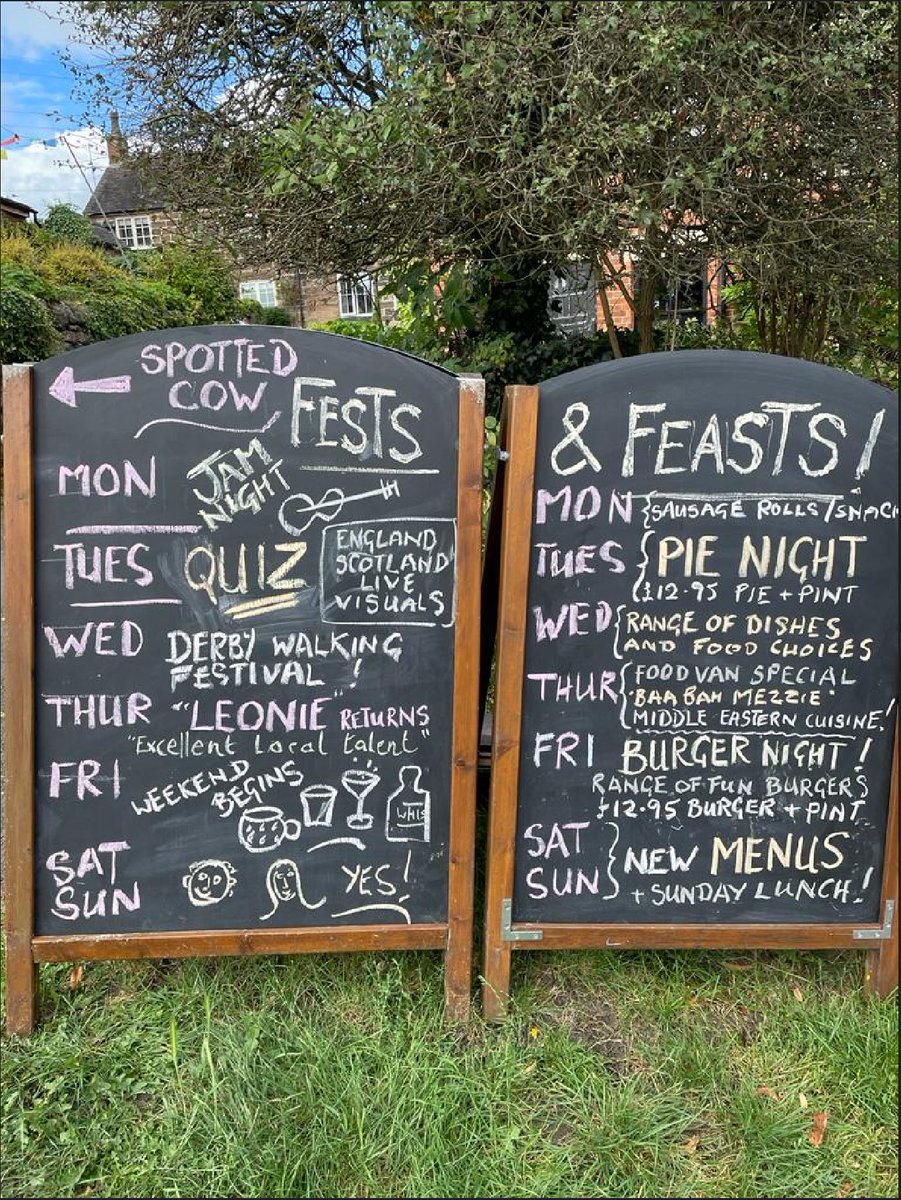 SPOTTED
COW
FESTS
MON
JAM
NIGHT
TUES
QUIZ
ENGLAND
SCOTLAND
LIVE
VISUALS
WED
DERBY WALKING
FESTIVAL!
THUR
"LEONIE" RETURNS
"Excellent Local talent"
FRI
WEEKEND
BEGINS
WHIS
SAT
SUN
YES!
& FEASTS!
MON
SAUSAGE ROLLS/SNACK
TUES
PIE NIGHT
£12.95 PIE + PINT
WED
RANGE OF DISHES
AND FOOD CHOICES
THUR
FOOD VAN SPECIAL
'BAA BAH MEZZIE'
MIDDLE EASTERN CUISINE!
FRI
BURGER NIGHT!
RANGE OF FUN BURGERS
£12.95 BURGER + PINT
SAT
SUN
NEW MENUS
+ SUNDAY LUNCH!